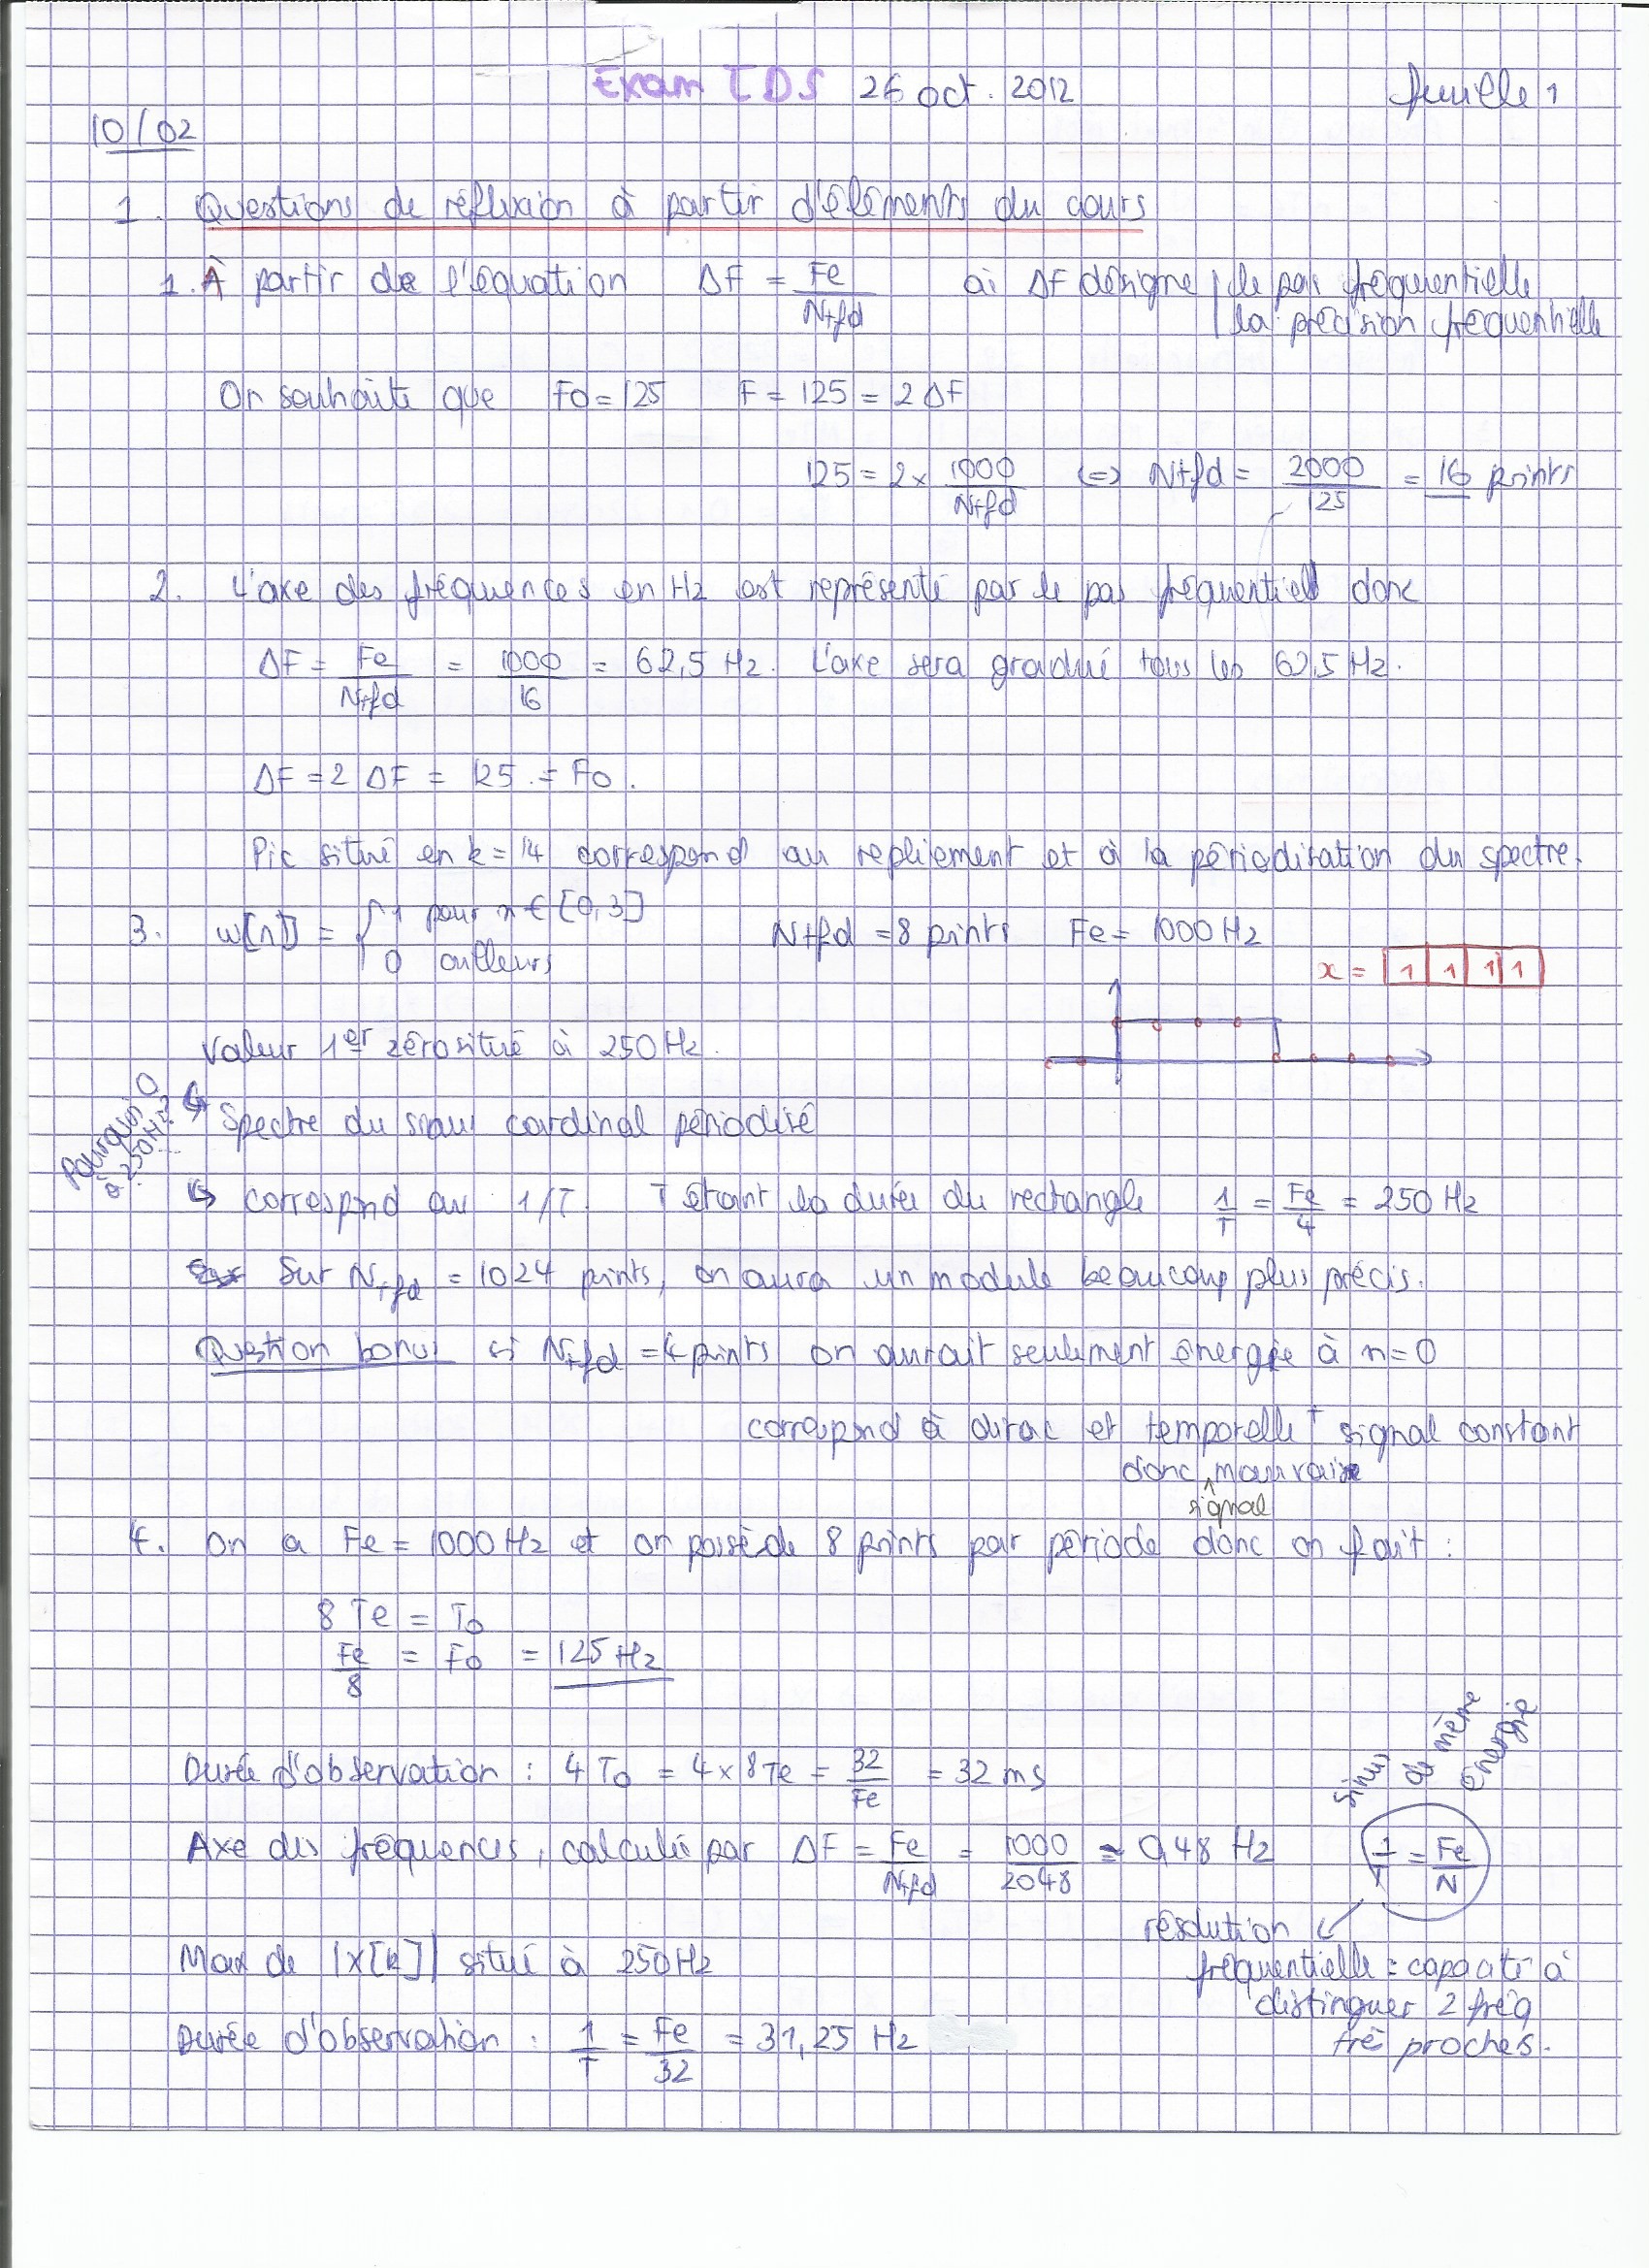 Exam TDS 26 oct. 2012 feuille 1
10/02
1. Questions de réflexion à partir d'éléments du cours
1. À partir de l'équation ΔF = Fe/Ntfd où ΔF désigne | le pas fréquentielle
| la précision fréquentielle
On souhaite que Fo = 125 F = 125 = 2 ΔF
125 = 2 × 1000/Ntfd (=) Ntfd = 2000/125 = 16 points
2. L'axe des fréquences en Hz est représenté par le pas fréquentiel donc
ΔF = Fe/Ntfd = 1000/16 = 62,5 Hz. L'axe sera gradué tous les 62,5 Hz.
ΔF = 2 ΔF = 125 = Fo.
Pic situé en k = 14 correspond au repliement et à la périodisation du spectre.
3. w[n] = { 1 pour n ∈ [0,3] Ntfd = 8 points Fe = 1000 Hz
0 ailleurs
x = 1 1 1 1
Valeur 1er zéro situé à 250 Hz.
Pourquoi 0
à 250 Hz ?
↳ Spectre du sinus cardinal périodisé
↳ correspond au 1/T. T étant la durée du rectangle 1/T = Fe/4 = 250 Hz
Sur Ntfd = 1024 points, on aura un module beaucoup plus précis.
Question bonus si Ntfd = 4 points on aurait seulement énergie à n = 0
correspond à dirac et temporellet signal constant
donc mauvais
signal
4. On a Fe = 1000 Hz et on possède 8 points par période donc on fait :
8 Te = To
Fe/8 = Fo = 125 Hz
Durée d'observation : 4 To = 4 × 8 Te = 32/Fe = 32 ms
sinus de même énergie
Axe des fréquences, calculée par ΔF = Fe/Ntfd = 1000/2048 ≈ 0,48 Hz
1/T = Fe/N
résolution
fréquentielle = capacité à
distinguer 2 fréq
très proches.
Max de |X[k]| situé à 250 Hz
Durée d'observation : 1/T = Fe/32 = 31,25 Hz